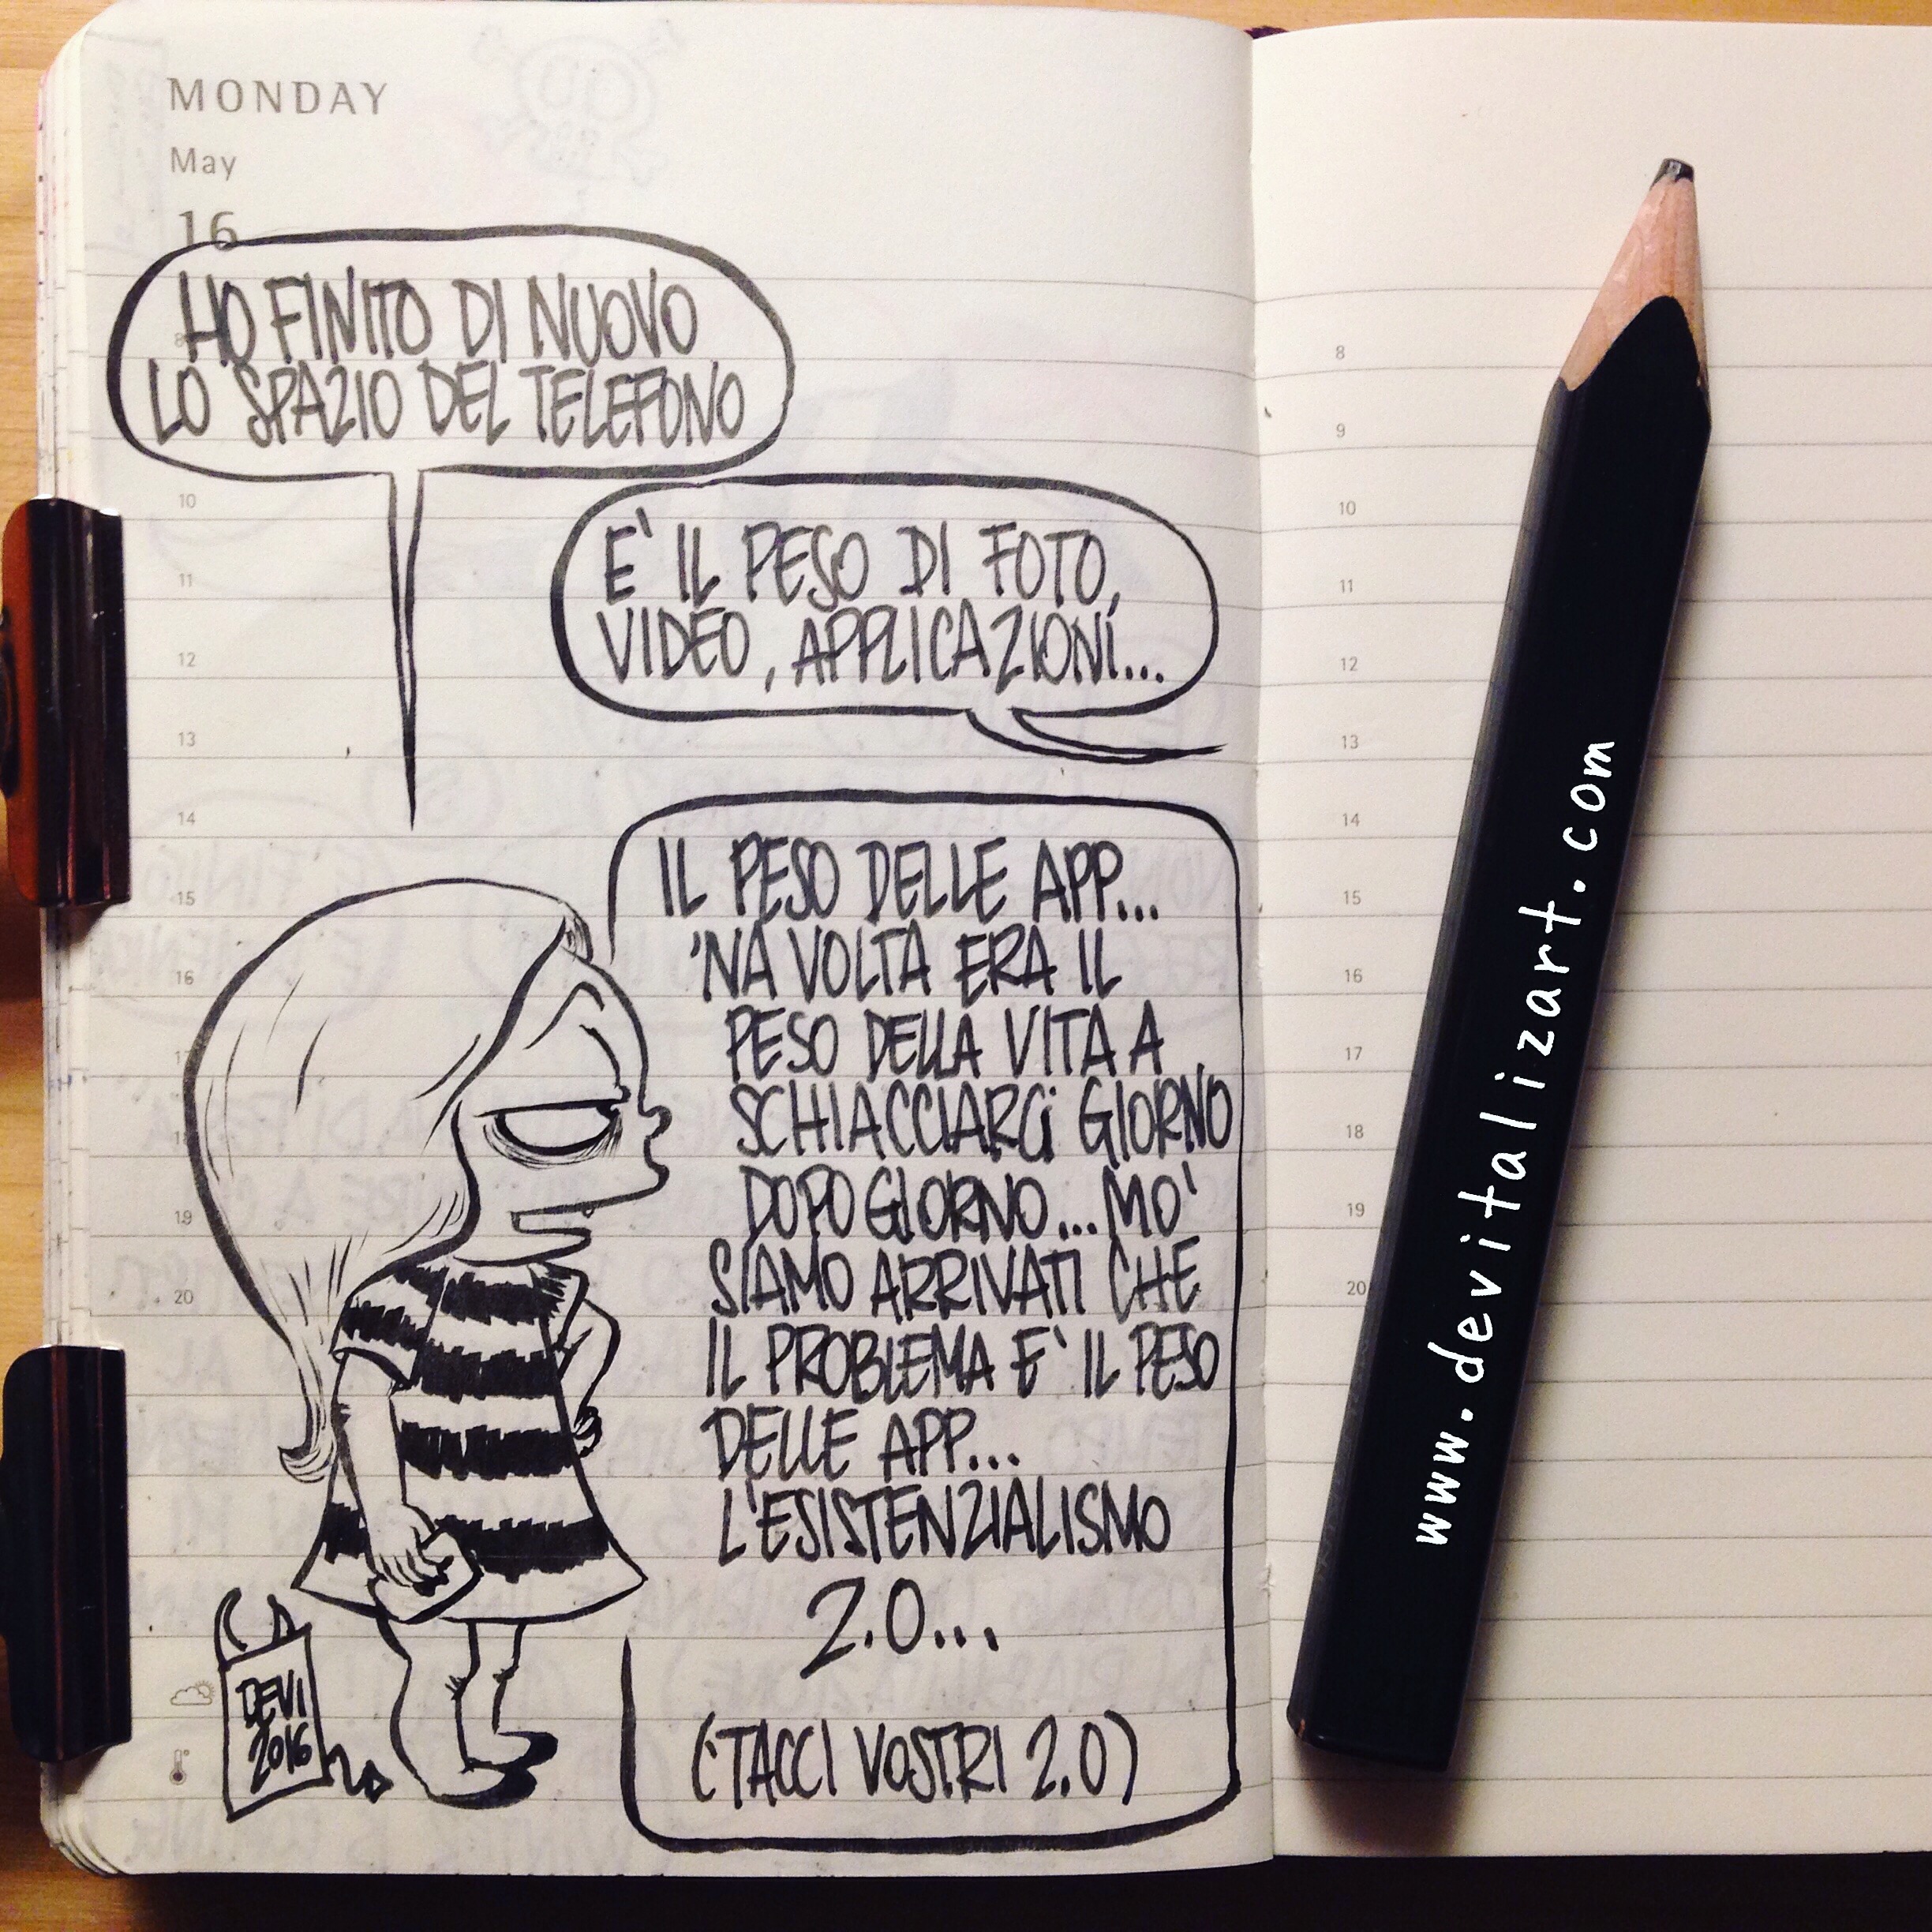 MONDAY
May
16
HO FINITO DI NUOVO
LO SPAZIO DEL TELEFONO
E' IL PESO DI FOTO,
VIDEO, APPLICAZIONI...
IL PESO DELLE APP...
'NA VOLTA ERA IL
PESO DELLA VITA A
SCHIACCIARCI GIORNO
DOPO GIORNO... MO'
SIAMO ARRIVATI CHE
IL PROBLEMA E' IL PESO
DELLE APP...
L'ESISTENZIALISMO
2.0...
('TACCI VOSTRI 2.0)
DEVI
2016
8
10
11
12
13
14
15
16
17
18
19
20
8
9
10
11
12
13
14
15
16
17
18
19
20
www.devitalizart.com